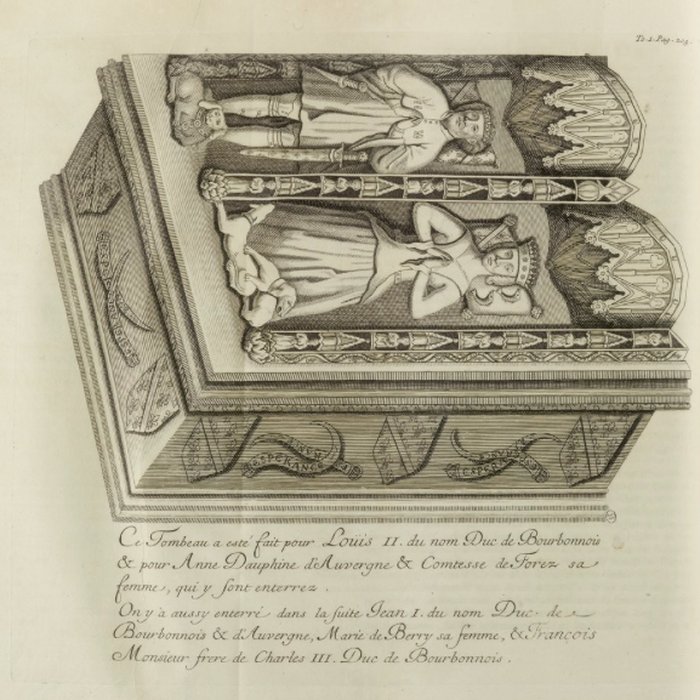 To. 1. Pag. 205.
ESPERANCE
ESPERANCE
Ce Tombeau a esté fait pour Loüis II. du nom Duc de Bourbonnois
& pour Anne Dauphine d'Auvergne & Comtesse de Forez sa
femme, qui y sont enterrez.
On y a aussy enterré dans la suite Jean I. du nom Duc de
Bourbonnois & d'Auvergne, Marie de Berry sa femme, & François
Monsieur frere de Charles III. Duc de Bourbonnois.